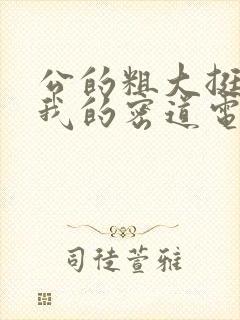 公的粗大挺
我的密道电
司徒萱雅